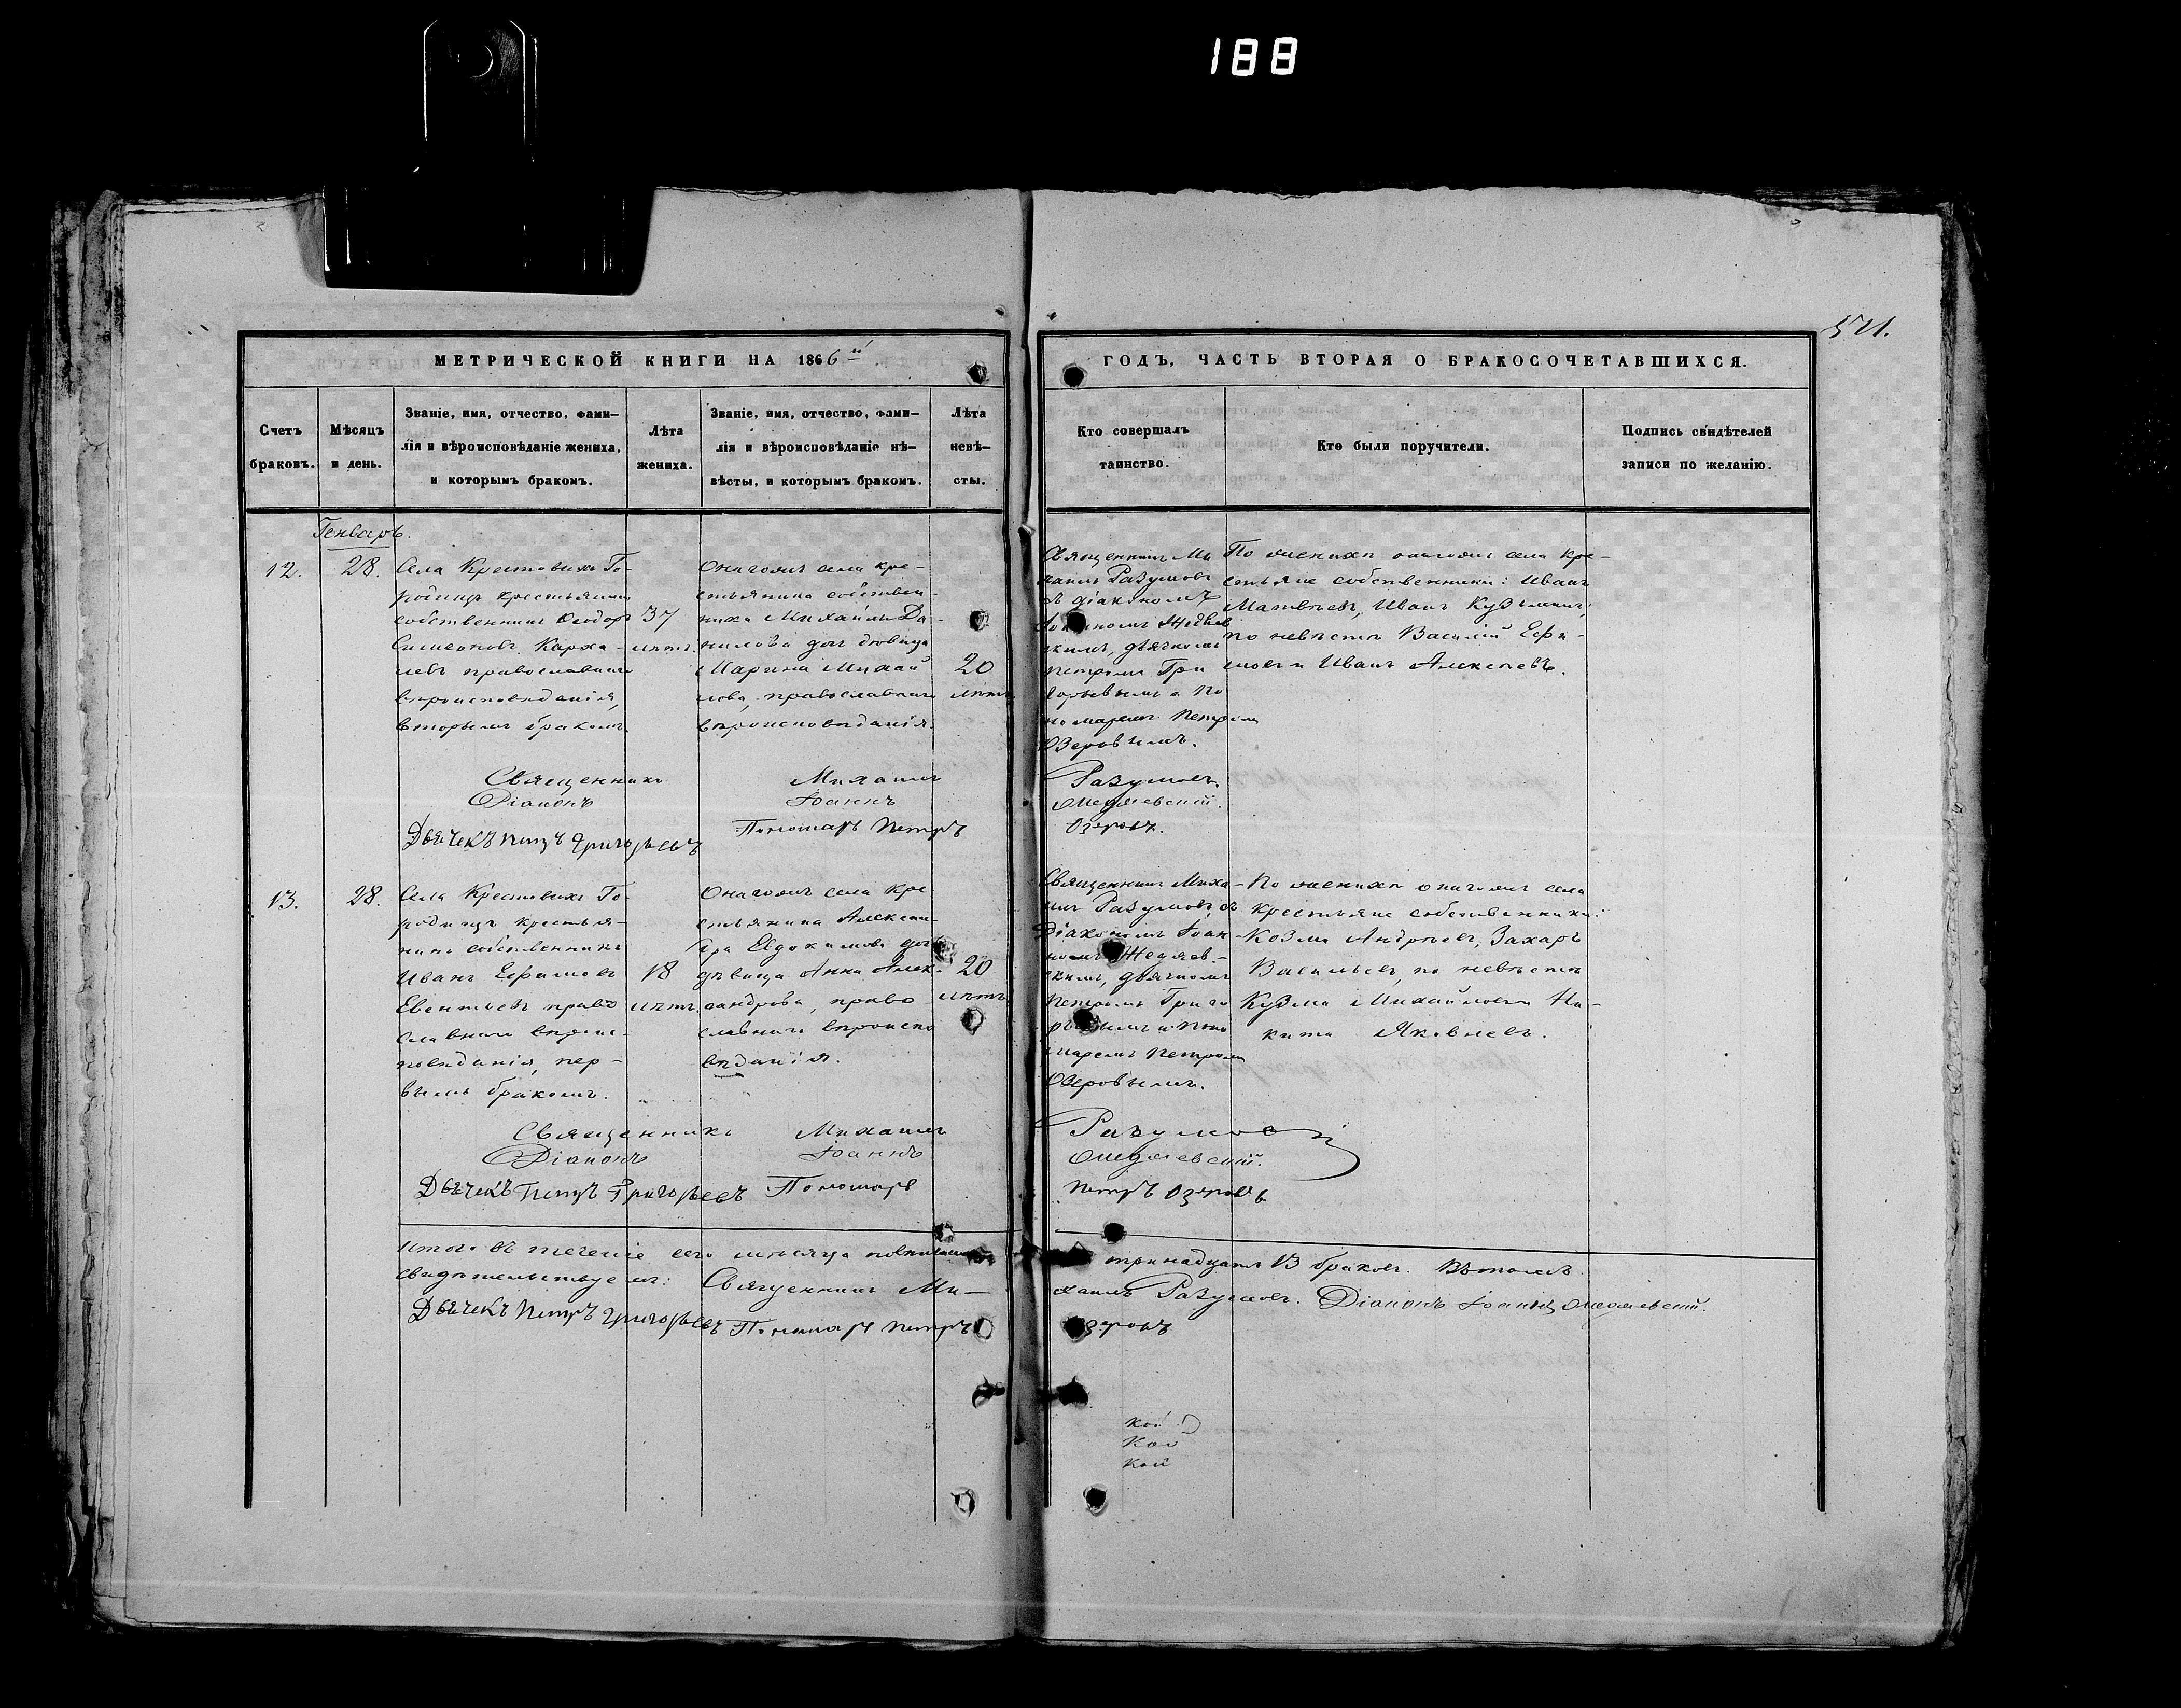 188
521.
МЕТРИЧЕСКОЙ КНИГИ НА 1866й
ГОДЪ, ЧАСТЬ ВТОРАЯ О БРАКОСОЧЕТАВШИХСЯ.
Счетъ
браковъ.
Мѣсяцъ
и день.
Званіе, имя, отчество, фами-
лія и вѣроисповѣданіе жениха,
и которымъ бракомъ.
Лѣта
жениха.
Званіе, имя, отчество, фами-
лія и вѣроисповѣданіе нѣ-
вѣсты, и которымъ бракомъ.
Лѣта
невѣ-
сты.
Кто совершалъ
таинство.
Кто были поручители.
Подпись свидѣтелей
записи по желанію.
Генварь.
12.
28.
Села Крестовыхъ Го-
родищъ крестьянинъ
собственникъ Ѳеодоръ
Симеоновъ Карха-
левъ православнаго
вѣроисповѣданія,
вторымъ бракомъ.
37
лѣтъ.
Онагожъ села кре-
стьянина собствен-
ника Михаила Да-
нилова дочь дѣвица
Марина Михай
лова, православнаго
вѣроисповѣданія.
20
лѣтъ
Священникъ Ми
хаилъ Разумовъ
съ діакономъ
дьячкомъ
Петромъ Гри
горьевымъ и По
номаремъ Петромъ
Озеровымъ.
По женихѣ онагожъ села кре-
стьяне собственники: Иванъ
Матвѣевъ, Иванъ Кузьминъ,
по невѣстѣ Василій Ефи-
мовъ и Иванъ Алексѣевъ.
Священникъ Михаилъ Разумовъ
Діаконъ Іоаннъ
Дьячекъ Петръ Григорьевъ Пономарь Петръ Озеровъ.
13.
28.
Села Крестовыхъ Го-
родищъ крестья-
нинъ собственникъ
Иванъ Ефимовъ
право
славнаго вѣроис-
повѣданія, пер-
вымъ бракомъ.
18
лѣтъ.
Онагожъ села кре-
стьянина Алексан-
дра Евдокимова дочь
дѣвица Анна Алек-
сандрова, право
славнаго вѣроиспо
вѣданія.
20
лѣтъ
Священникъ Миха-
илъ Разумовъ съ
діакономъ Іоан-
номъ
скимъ, дьячкомъ
Петромъ Григо
рьевымъ и Поно
маремъ Петромъ
Озеровымъ.
По женихѣ онагожъ села
крестьяне собственники:
Козма Андреевъ, Захаръ
Васильевъ, по невѣстѣ
Кузма Михайловъ и Ни-
кита Яковлевъ.
Священникъ Михаилъ Разумовъ
Діаконъ Іоаннъ
Дьячекъ Петръ Григорьевъ Пономарь Петръ Озеровъ
Итого въ теченіе сего мѣсяца тринадцать 13 браковъ. Въ томъ
свидѣтельствуемъ: Священникъ Михаилъ Разумовъ. Діаконъ Іоаннъ
Дьячекъ Петръ Григорьевъ Пономарь Петръ Озеровъ
кой
кой
кой